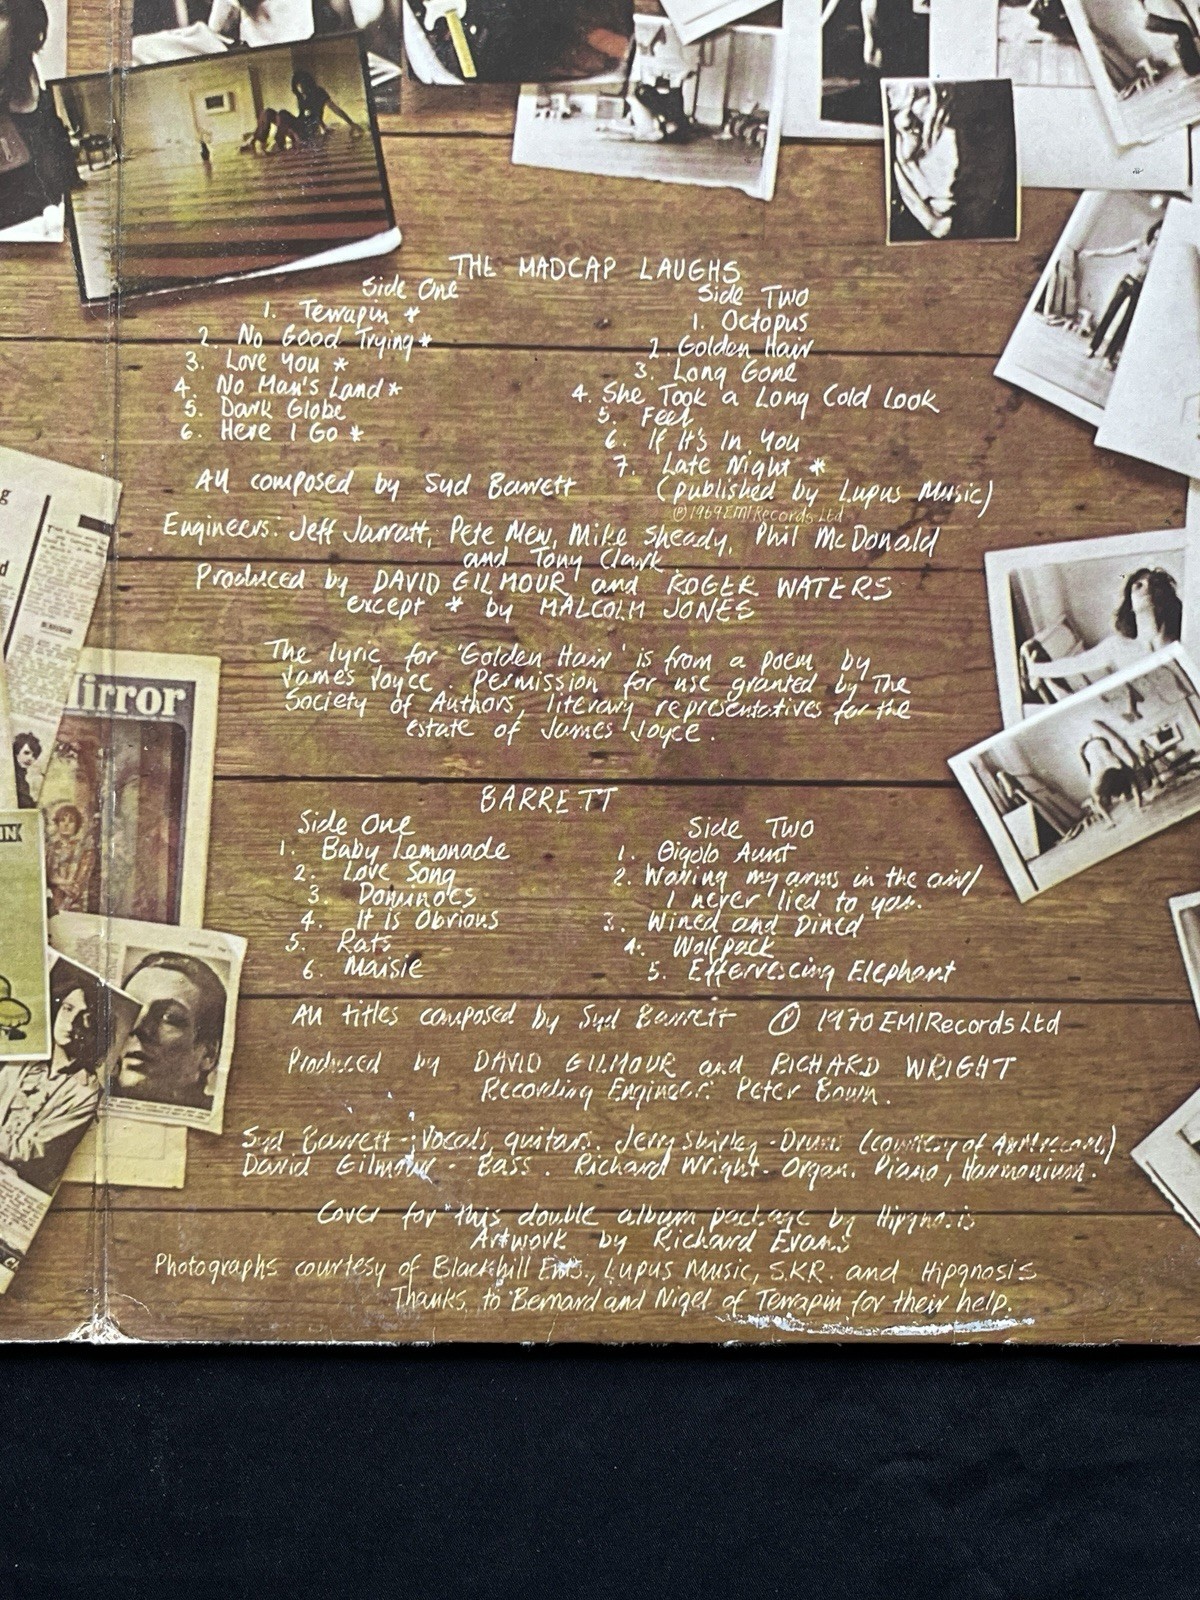 THE MADCAP LAUGHS
Side One
1. Terrapin *
2. No Good Trying *
3. Love You *
4. No Man's Land *
5. Dark Globe
6. Here I Go *
Side Two
1. Octopus
2. Golden Hair
3. Long Gone
4. She Took a Long Cold Look
5. Feel
6. If It's In You
7. Late Night *
(published by Lupus Music)
All composed by Syd Barrett
℗ 1969 EMI Records Ltd
Engineers: Jeff Jarratt, Pete Mew, Mike Sheady, Phil McDonald
and Tony Clark.
Produced by DAVID GILMOUR and ROGER WATERS
except * by MALCOLM JONES
The lyric for 'Golden Hair' is from a poem by
James Joyce. Permission for use granted by The
Society of Authors, literary representatives for the
estate of James Joyce.
BARRETT
Side One
1. Baby Lemonade
2. Love Song
3. Dominoes
4. It is Obvious
5. Rats
6. Maisie
Side Two
1. Gigolo Aunt
2. Waving my arms in the air/
I never lied to you.
3. Wined and Dined
4. Wolfpack
5. Effervescing Elephant
All titles composed by Syd Barrett ℗ 1970 EMI Records Ltd
Produced by DAVID GILMOUR and RICHARD WRIGHT
Recording Engineer: Peter Bown.
Syd Barrett - Vocals, guitar. Jerry Shirley - Drums (courtesy of
David Gilmour - Bass. Richard Wright - Organ. Piano, Harmonium.
Cover for this double album package by Hipgnosis
Artwork by Richard Evans
Photographs courtesy of Blackhill Ents., Lupus Music, S.K.R. and Hipgnosis
Thanks to Bernard and Nigel of Terrapin for their help.
Mirror